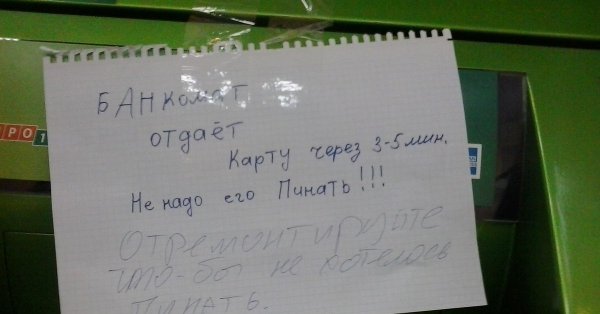 БАНКомат
отдаёт
Карту через 3-5 мин.
Не надо его Пинать!!!
Отремонтируйте
что-бы не хотелось
пинать.
PO1